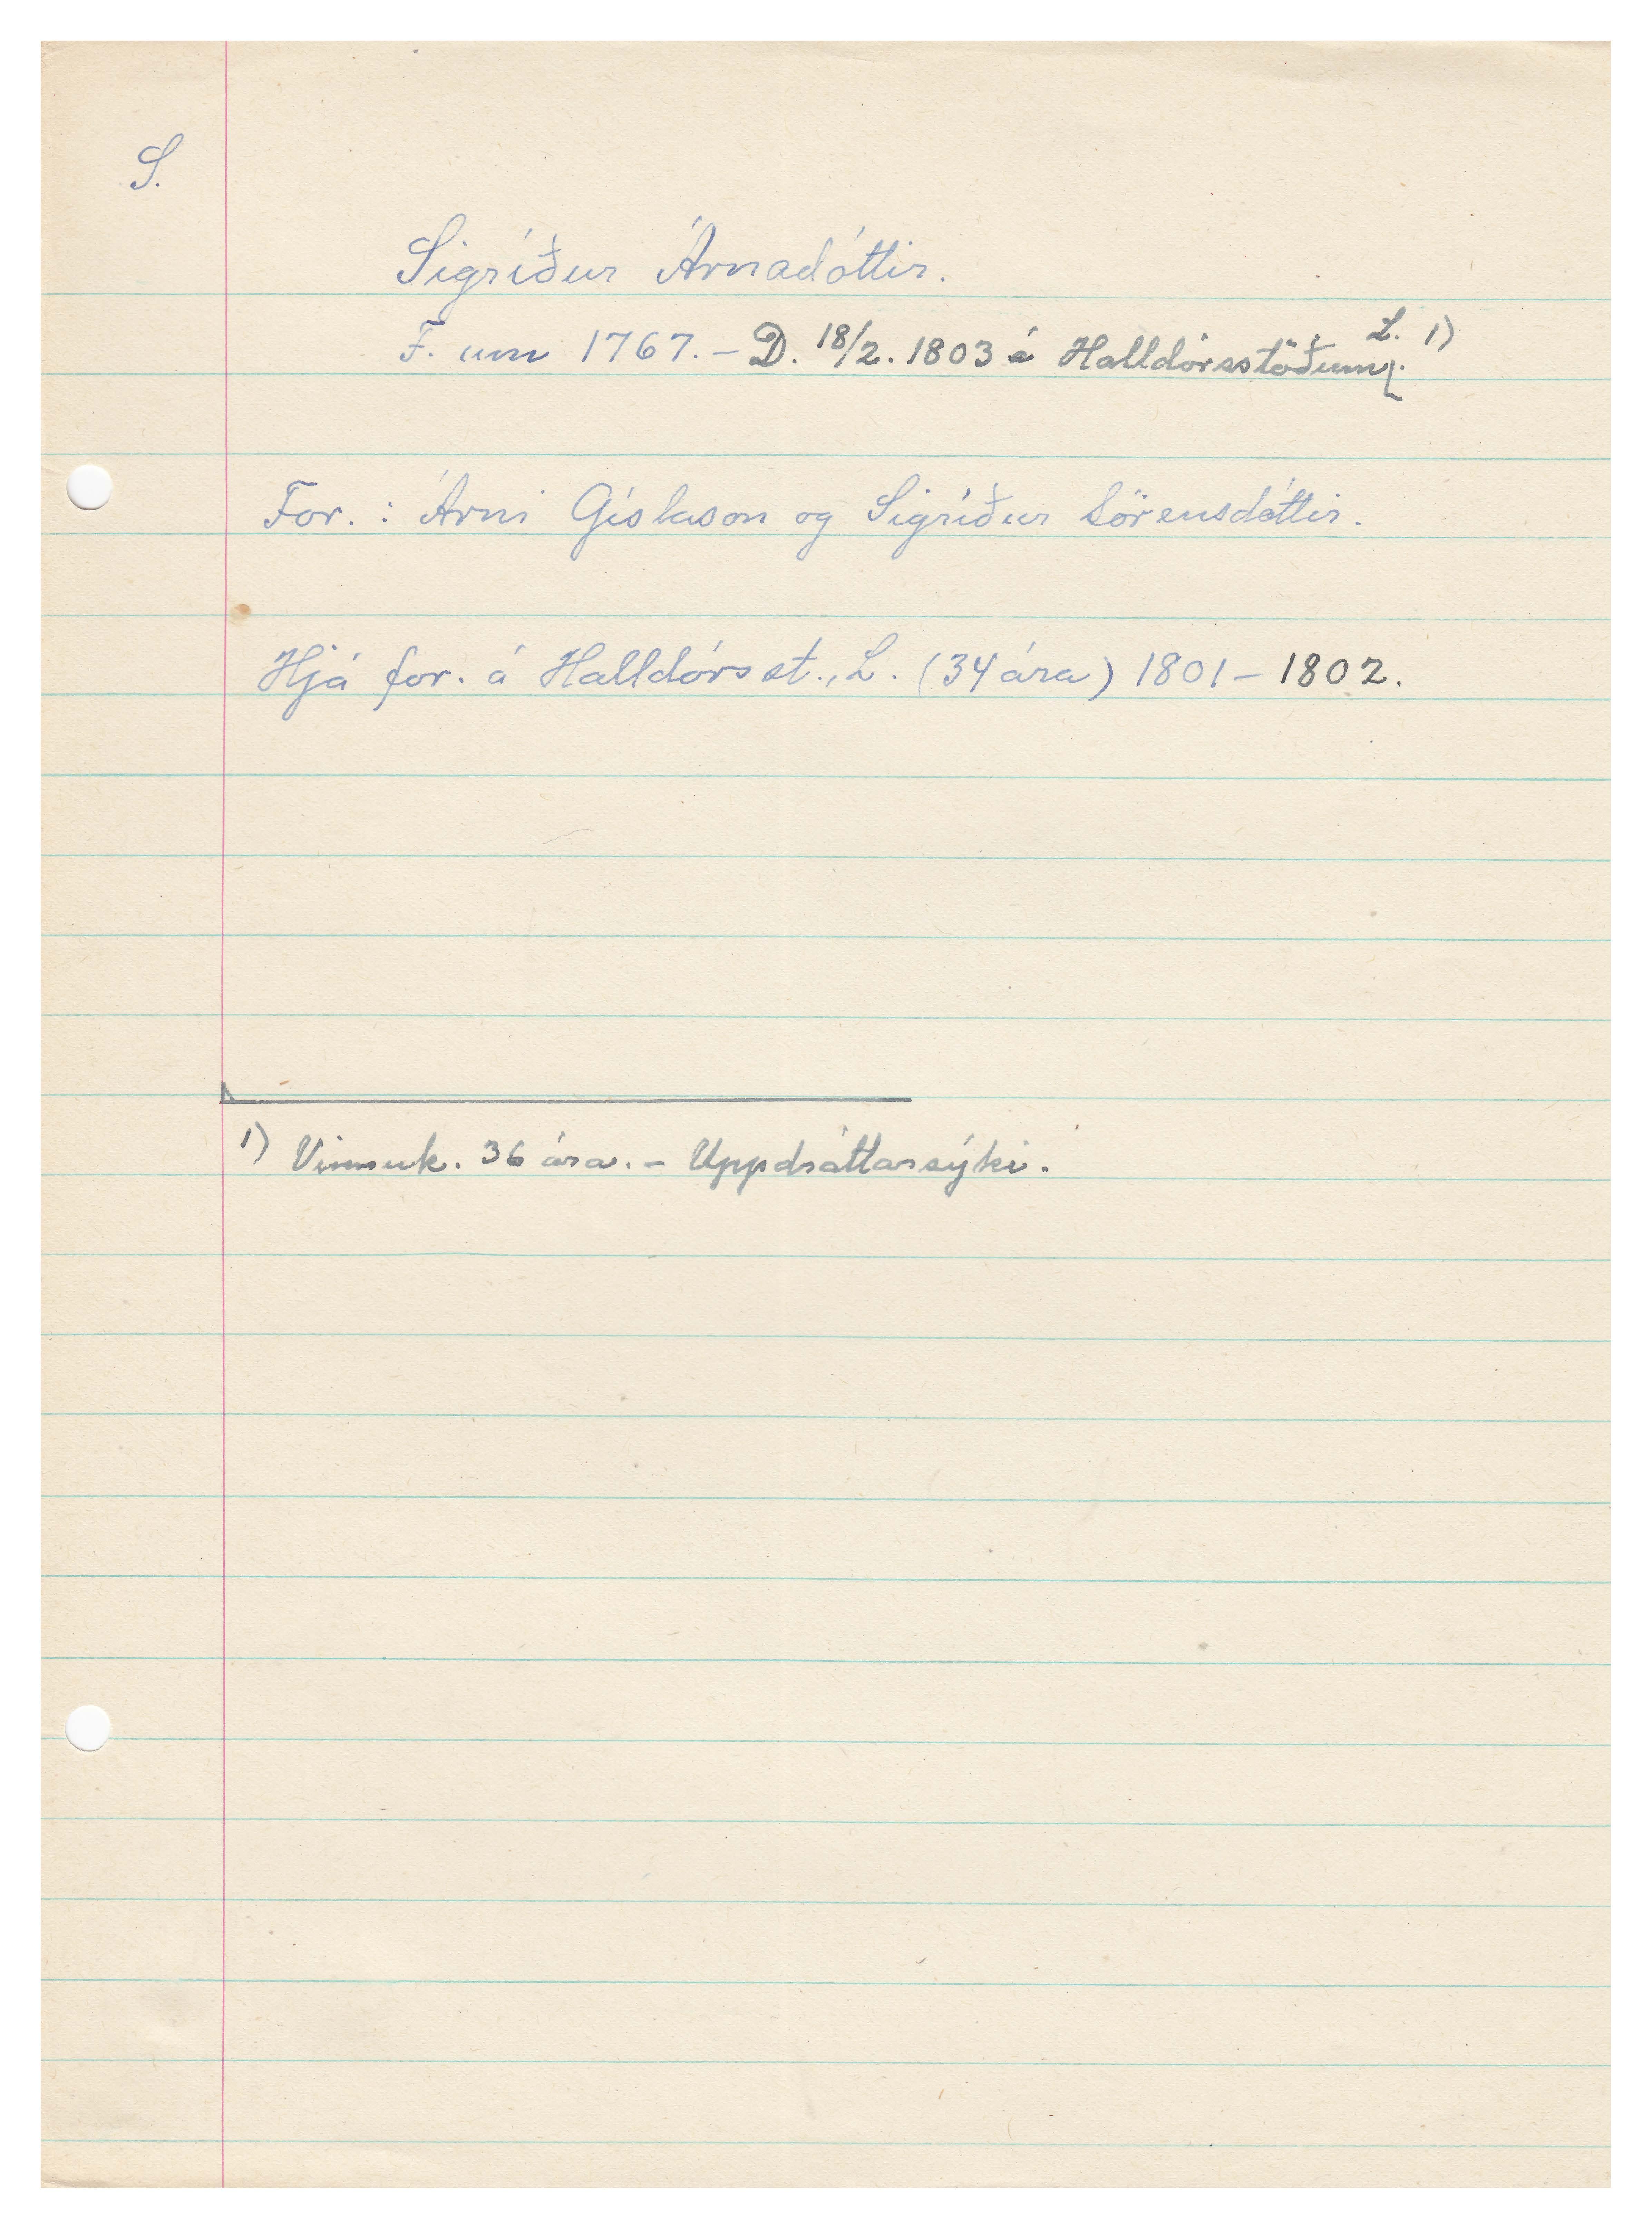 S.
Sigríður Árnadóttir.
F. um 1767. – D. 18/2. 1803 á Halldórsstöðum, L. 1)
For. : Árni Gíslason og Sigríður Sörensdóttir.
Hjá for. á Halldórsst., L. (34 ára) 1801 – 1802.
1) Vinnuk. 36 ára. – Uppdráttarsýki.